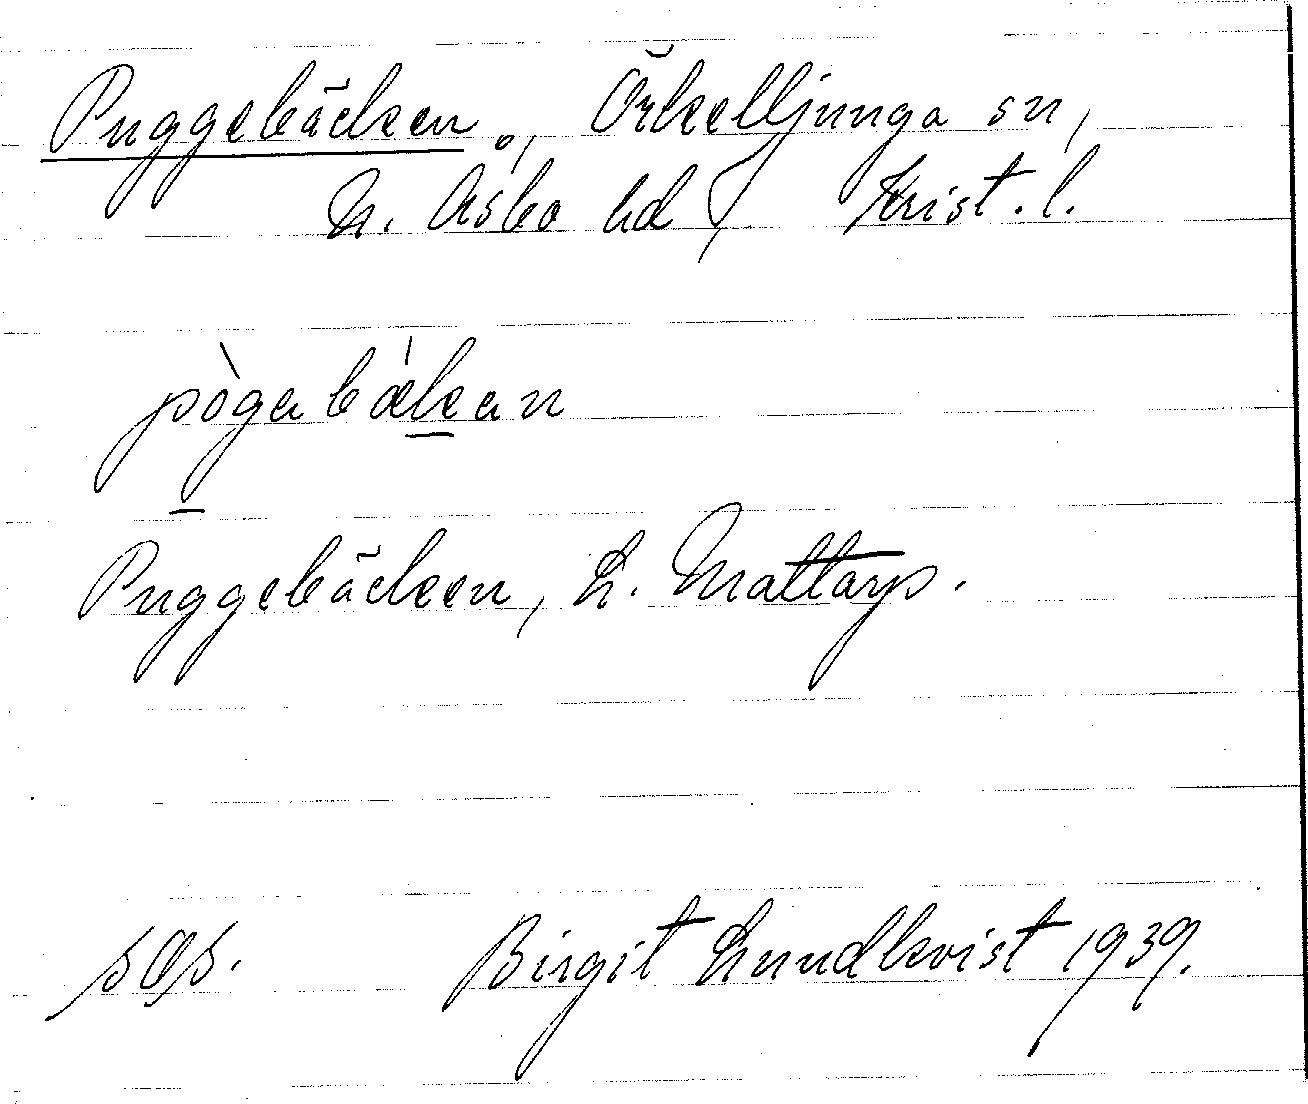 Puggebäcken., Örkelljunga sn,
N. Åsbo hd, Krist. l.
pògabǽkan
Puggebäcken, L. Mattarp.
Birgit Lundkvist 1939.